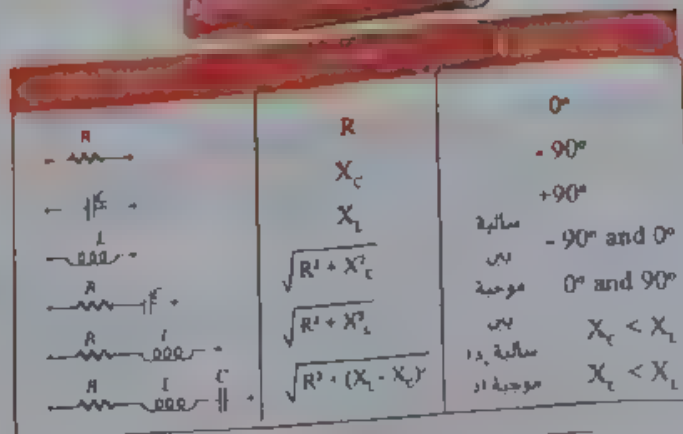 R R 0°
C X_C - 90°
L X_L +90°
R C √R² + X²_C سالبة بين - 90° and 0°
R L √R² + X²_L موجبة بين 0° and 90°
R L C √R² + (X_L - X_C)² سالبة إذا X_C < X_L
موجبة إذا X_C < X_L